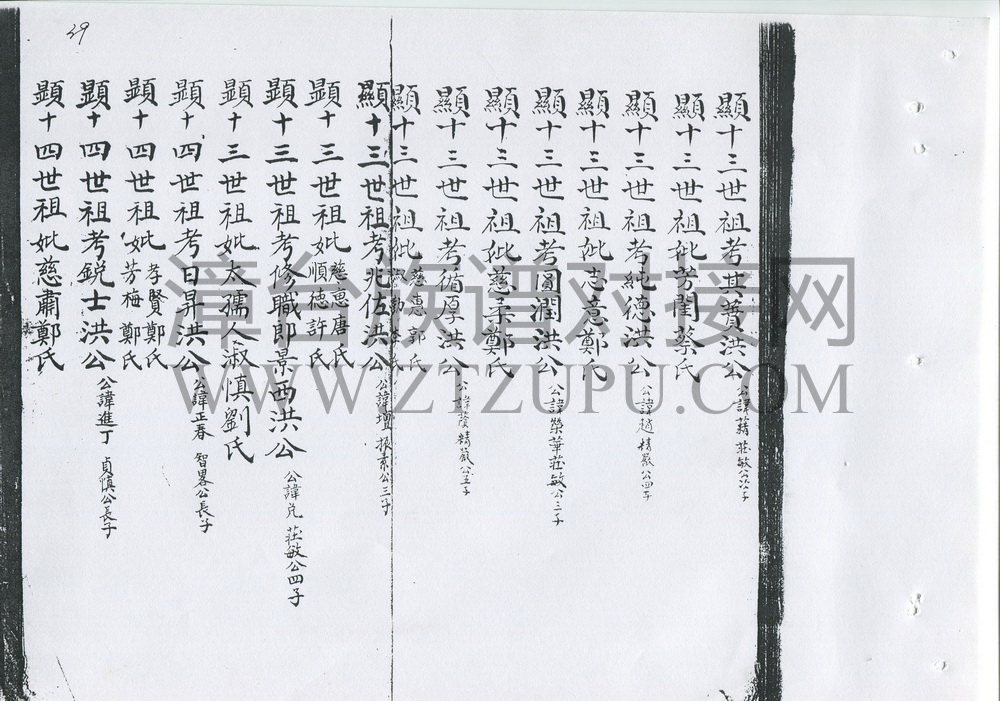 顯十三世祖考其蕡洪公 公諱藉 莊敏公次子
顯十三世祖妣芳閨蔡氏
顯十三世祖考純德洪公 公諱趙 精嚴公四子
顯十三世祖妣志意鄭氏
顯十三世祖考圓潤洪公 公諱榮華 莊敏公三子
顯十三世祖妣慈柔鄭氏
顯十三世祖考循厚洪公 公諱 精嚴公五子
顯十三世祖妣慈惠郭氏 勤李氏
顯十三世祖考兆佐洪公 公諱壇 振素公三子
顯十三世祖妣慈思唐氏 順德許氏
顯十三世祖考修職郎景西洪公 公諱兌 莊敏公四子
顯十三世祖妣太孺人淑慎劉氏
顯十四世祖考日昇洪公 公諱正春 智畧公長子
顯十四世祖妣孝賢鄭氏 芳梅鄭氏
顯十四世祖考銳士洪公 公諱進丁 貞慎公長子
顯十四世祖妣慈肅鄭氏
29
漳台族谱对接网
WWW.ZTZUPU.COM